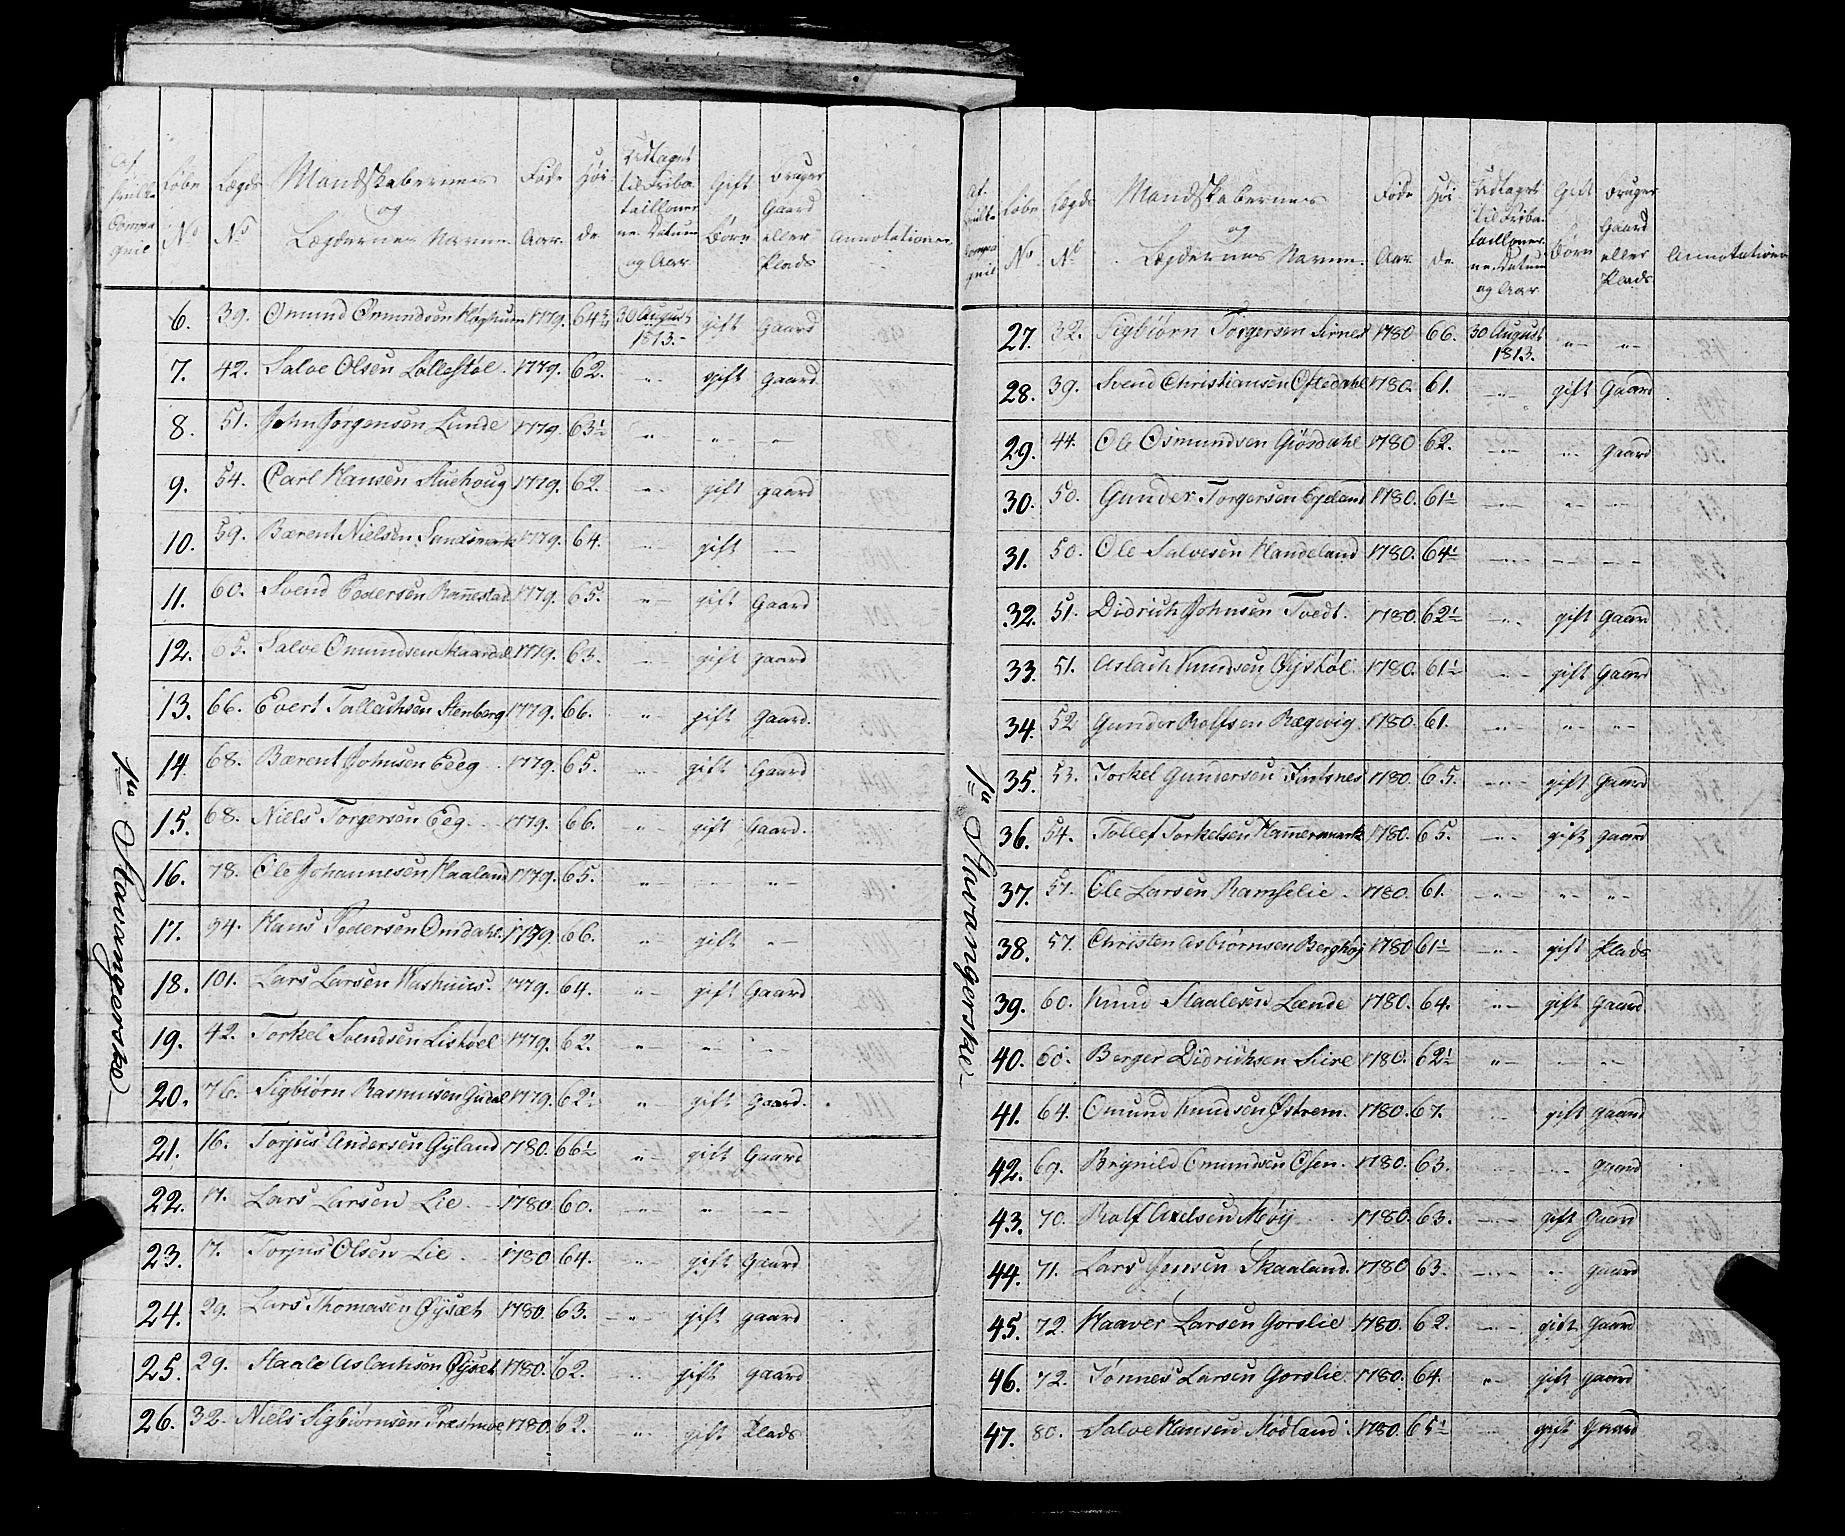 Af hvilke Compagnie | Løbe No | Lægds No | Mandskabernes og Lægdernes Navne | Føde Aar. | Høide | Udtaget til Fribataillonerne Datum og Aar | Gift Børn | Bruger Gaard eller Plads | Annotationer
1ste Stavangerske
6. 39. Omund Omundsen 1779. 64 30 August 1813. gift Gaard
7. 42. Salve Olsen Lollestøl. 1779. 62. -"- gift Gaard.
8. 51. John Jørgensen Lunde 1779. 63½ -"- -"- -"-
9. 54. Carl Hansen Stuehoug 1779. 62. -"- gift gaard
10. 59. Bærent Nielsen Sandsmark 1779. 64. -"- gift -"-
11. 60. Svend Pedersen Rannestad 1779. 65. -"- gift Gaard
12. 65. Salve Omundsen Skaardal 1779. 63. -"- gift gaard
13. 66. Evert Tallachsen Stenberg 1779. 66. -"- gift Gaard.
14. 68. Bærent Johnsen Eeg 1779. 65. -"- gift Gaard
15. 68. Niels Torgersen Eeg. 1779. 66. -"- gift Gaard.
16. 78. Ole Johannesen Haaland 1779. 65. -"- -"- -"-
17. 94. Hans Pedersen Omdahl. 1779. 66. -"- gift -"-
18. 101. Lars Larsen 1779. 64. -"- gift Gaard
19. 42. Torkel Svendsen Listøel 1779. 62. -"- -"- -"-
20. 76. Sigbiørn Rasmusen Gudal 1779. 62½ " gift Gaard.
21. 16. Torjus Andersen Gyland 1780. 66½ -"- gift Gaard
22. 17. Lars Larsen Lie. 1780 60. -"- -"- -"-
23. 17. Torjus Olsen Lie 1780 64. -"- gift Gaard
24. 29. Lars Thomasen Øysæt 1780. 63. -"- gift gaard
25. 29. Staale Aslachsen Øysæt 1780. 62. -"- gift gaard
26. 32. Niels Sigbiørnsen 1780. 62. -"- gift Plads
Af hvilke Compagnie | Løbe No | Lægds No | Mandskabernes og Lægdernes Navne. | Føde Aar. | Høide | Udtaget til Fribataillonerne Datum og Aar | Gift Børn | Bruger Gaard eller Plads | Annotationer
1ste Stavangerske
27. 32. Sigbiørn Torgersen Sirnes 1780 66. 30 August 1813. -"- -"-
28. 39. Svend Christiansen Oftedahl 1780. 61. -"- gift Gaard.
29. 44. Ole Osmundsen Giøsdahl 1780 62. -"- -"- Gaard
30. 50. Gunder Torgersen Egeland 1780. 61½ -"- -"- -"-
31. 50. Ole Salvesen Handeland 1780. 64½ -"- -"- -"-
32. 51. Didrich Johnsen Tvedt. 1780. 62½ -"- gift Gaard
33. 51. Aslach Knudsen Øystøl. 1780. 61½ -"- gift Gaard
34. 52 Gunder Rolfsen Rægevig. 1780. 61. -"- -"- -"-
35. 53. Torkel Gundersen 1780. 65. -"- gift Gaard
36. 54. Tollef Torkelsen Hammersmark 1780. 65. -"- gift gaard
37. 57. Ole Larsen Ramslie. 1780. 61. -"- -"- -"-
38. 57. Christen Asbiørnsen Berghøj 1780 61½ -"- gift Plads
39. 60. Knud Staalesen Lænde 1780. 64. -"- gift Gaard
40. 60. Berger Didrichsen Siire 1780. 62½ -"- -"- -"-
41. 64. Omund Knudsen Østrem. 1780. 67. -"- gift gaard
42. 69. Brynild Omundsen Osen. 1780. 63. -"- -"- gaard
43. 70. Rolf Axelsen Møy 1780. 63. -"- gift Gaard
44. 71. Lars Jensen Skaaland. 1780 63. -"- -"- gaard
45. 72. Haaver Larsen Gorslie 1780. 62. -"- gift Gaard
46. 72. Tønnes Larsen Gorslie. 1780. 64. -"- gift gaard
47. 80. Salve Hansen Mødland. 1780. 65½ -"- gift Gaard